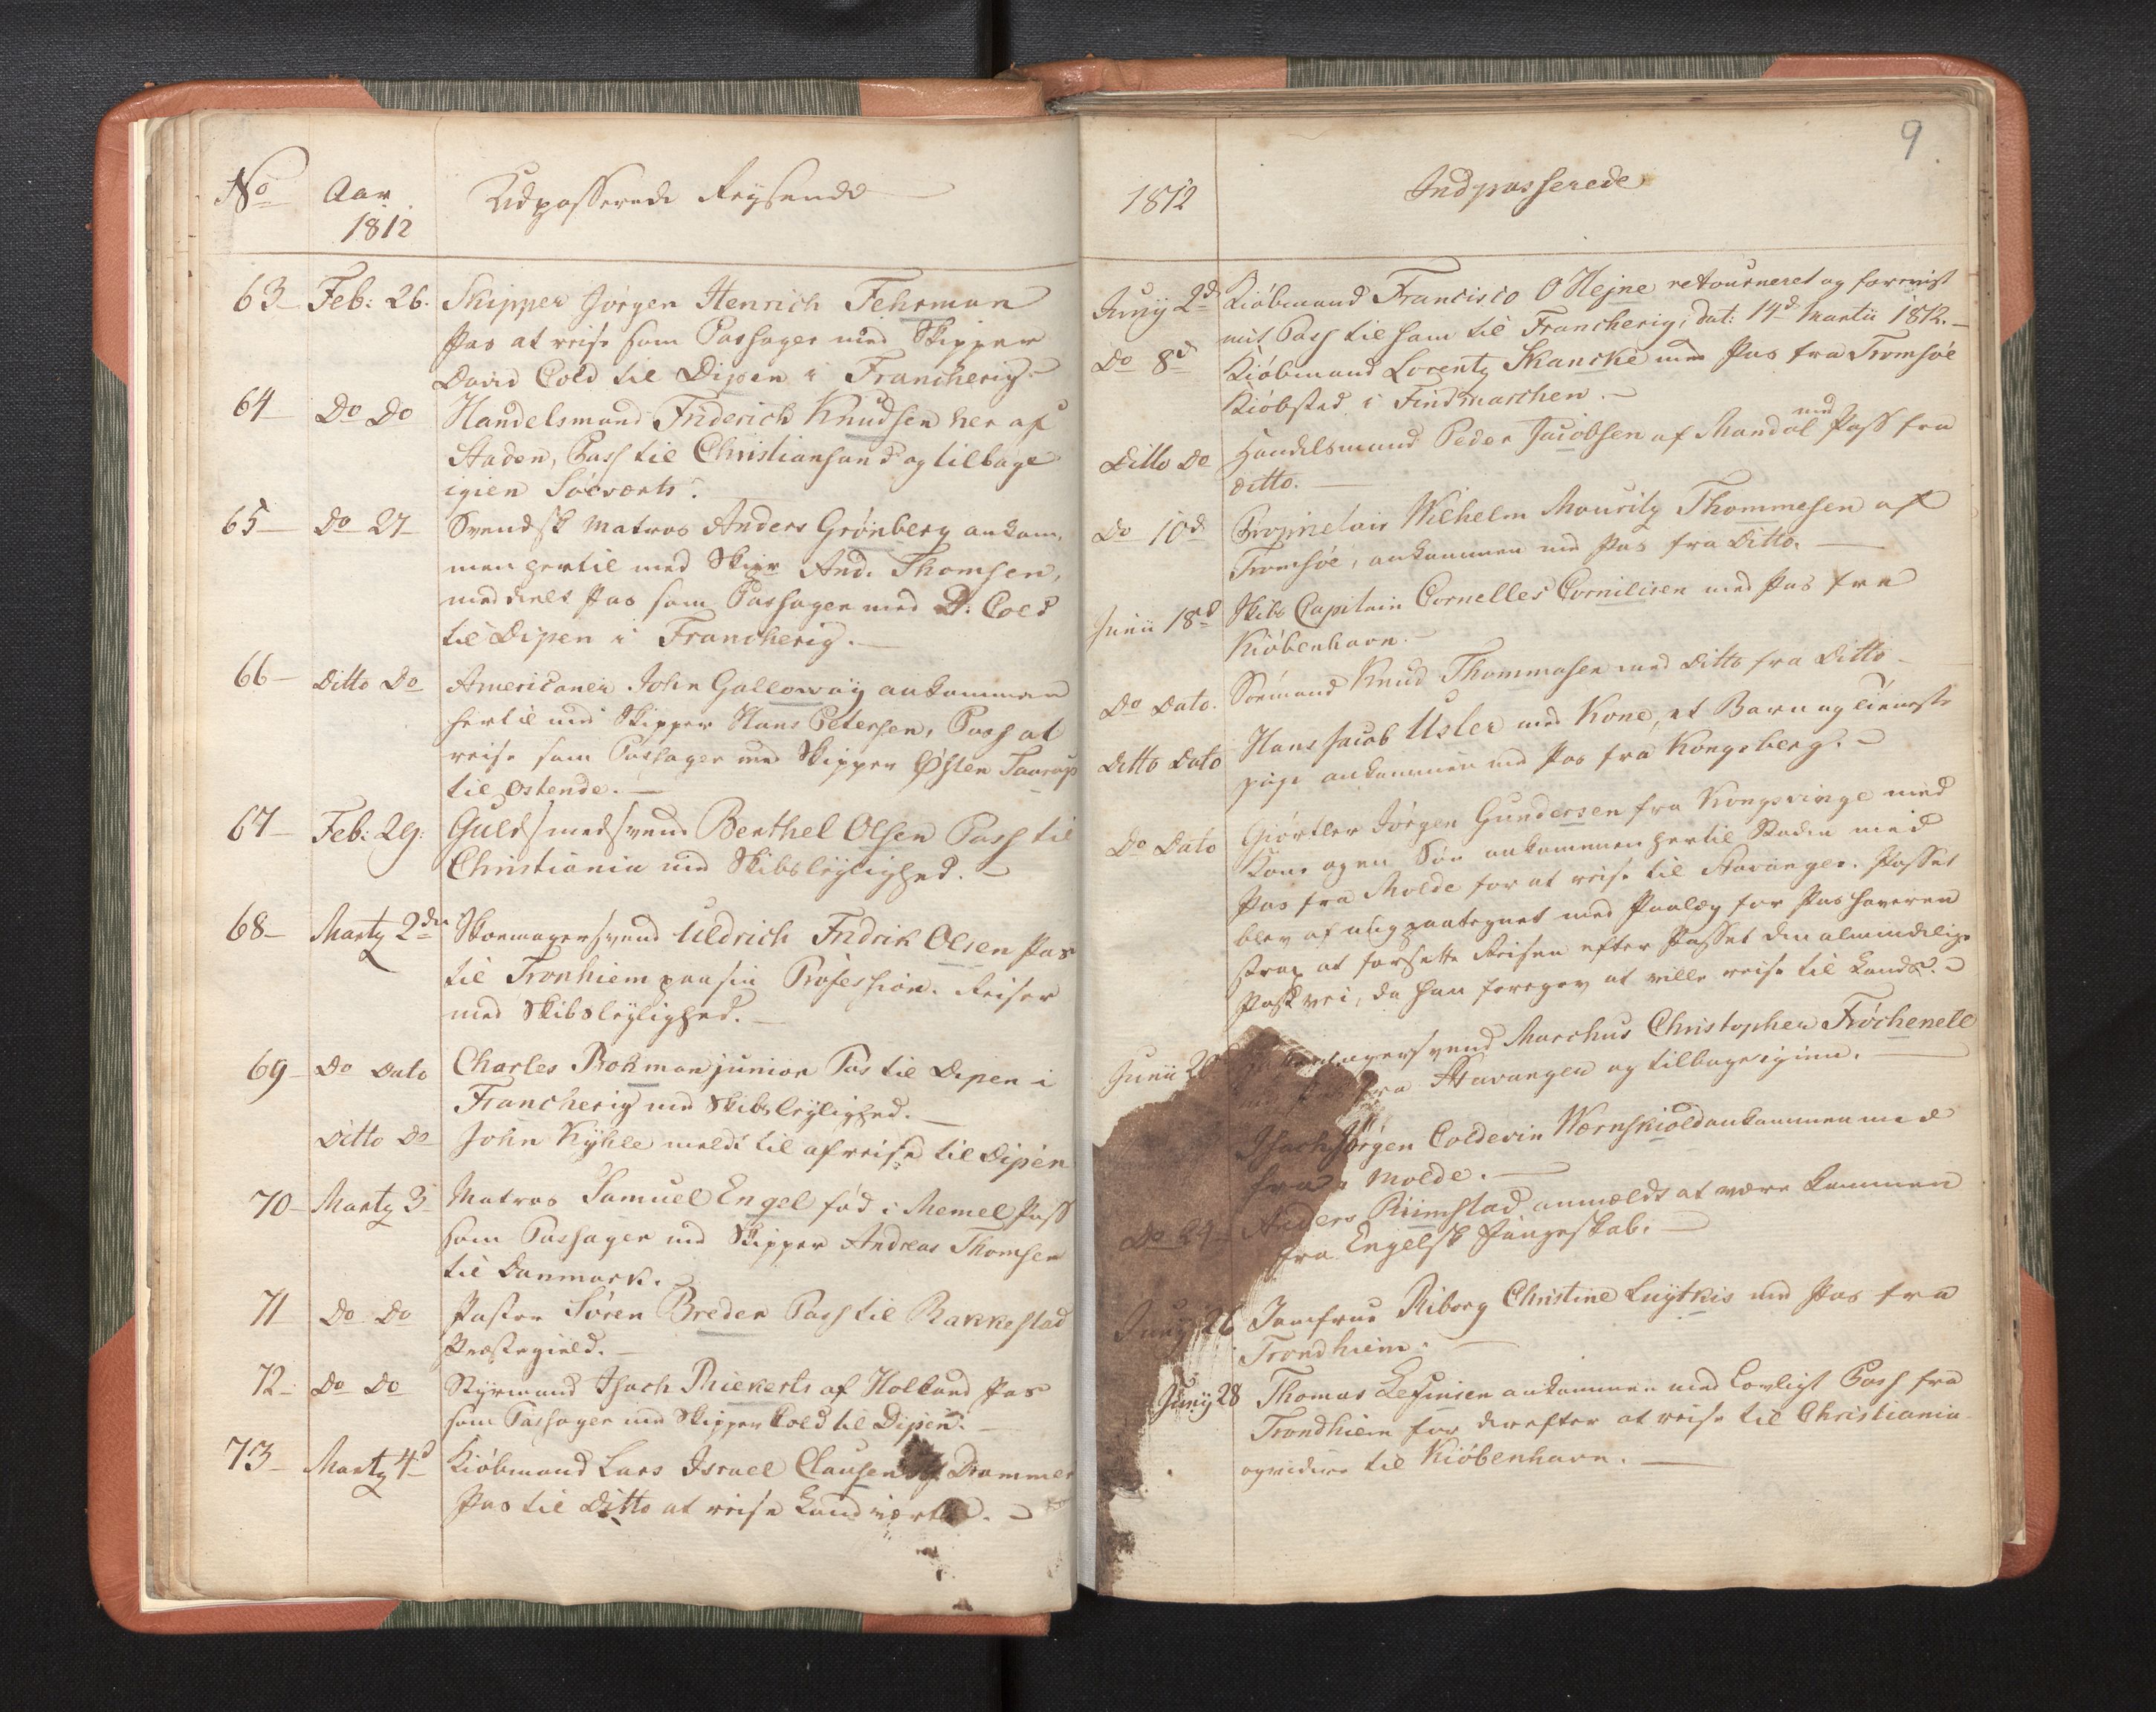 No Aar Udpasserede Reysende
1812
63 Feb: 26. Skipper Jörgen Henrich Fehrman
Pas at reise som Passager med Skipper
David Cold til Dipen i Francherig
64 Do Do Handelsmand Friderich Knudsen her af
Staden, Pass til Christiansand og tilbage
igien Söeværts.
65 Do 27 Svendsk Matros Anders Grönberg ankom-
men hertil med Skipr And. Thomsen,
meddeelt Pas som Passager med D: Cold
til Dipen i Francherig.
66 Ditto Do Americaner John Galloway ankommen
hertil med Skipper Hans Petersen, Pass at
reise som Passager med Skipper Østen Taarup
til Ostende.
67 Feb: 29. Guldsmedsvend Benthel Olsen Pass til
Christiania med Skibsleylighed.
68 Marty 2de Skoemagersvend Uldrich Fridrik Olsen Pas
til Tronhiem paa sin Profession. Reiser
med Skibsleylighed.
69 Do Dato Charles Bokman junior Pas til Dipen i
Francherig med Skibsleylighed.
Ditto Do John Kyhle meldt til afreise til Dipen
70 Marty 3 Matros Samuel Engel föd i Memel Pass
som Passager med Skipper Andreas Thomsen
til Danmark.
71 Do Do Pastor Sören Breder Pass til Rakkestad
Præstegield.
72 Do Do Styrmand Isach Rickerts af Holland Pas
som Passager med Skipper Cold til Dipen.
73 Marty 4d Kiöbmand Lars Israel Clausen af Drammen
Pas til Ditto at reise Landværts.
9
1812 Indpasserede
Juny 2d Kiöbmand Francisco O'Hejne retourneret og forevist
mit Pass til ham til Francherig, dat: 14d Martii 1812.
Do 8d Kiöbmand Lorentz Skancke med Pas fra Tromsöe
Kiöbsted i Findmarchen.
Ditto Do Handelsmand Peder Jacobsen af Mandal med Pass fra
ditto.
Do 10d Proprietair Wilhelm Mouritz Thommesen af
Tromsöe, ankommen med Pas fra Ditto.
Junii 18d Skibs Capitain Cornelles Cornilisen med Pas fra
Kiöbenhavn.
Do Dato. Söemand Knud Thommasen med Ditto fra Ditto
Ditto Dato Hans Jacob Usler med Kone, et Barn og tieneste
pige ankommen med Pas fra Kongsberg.
Do Dato Giörtler Jörgen Gundersen fra Kongsvinge med
Kone og en Sön ankommen hertil Staden med
Pas fra Molde for at reise til Stavanger. Passet
blev af mig paategnet med Paalæg for Pashaveren
strax at forsette Reisen efter Passet den almindelige
Postvei, da han foregav at ville reise til Lands.
Junii Marchus Christopher Fröchenell
med Pas fra Stavanger og tilbage igien.
Isach Jörgen Coldevin Wernskiold ankommen med
fra Molde.
Do 24 Anders Riimstad anmeldt at være kommen
fra Engelsk Fangeskab.
Juny 26 Jomfrue Riborg Christine Luytkis med Pas fra
Trondhiem.
Juny 28 Thomas Lefinsen ankommen med Lovligt Pass fra
Trondhiem for derefter at reise til Christiania
og videre til Kiöbenhavn.